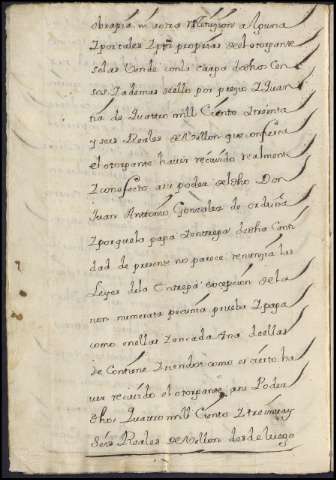 obrapia ni otra Memoria alguna
Y portales Y pr proprias se el otorgante
se las Vende con la carga dicho Cen
sos Y ademas de ello por prezio Y quan
tia de quatro mill Ciento Y treinta
y seis Reales de Vellon que confiesa
el otorgante haver rezivido realmente
Y con efecto a su poder de dho Don
Juan Antonio Gonzalez de
Y porque la paga Y entrega dicha Canti
dad de presente no parece renunzia las
Leyes de la Entrega excepcion de la
non numerata pecunia prueba Y paga
como en ellas Y en cada Una de ellas
se Contiene Y siendo como es cierto ha
ver rezivido el otorgante a su Poder
dhos Quatro mill Ciento Y treinta y
Seis Reales de Vellon desde luego